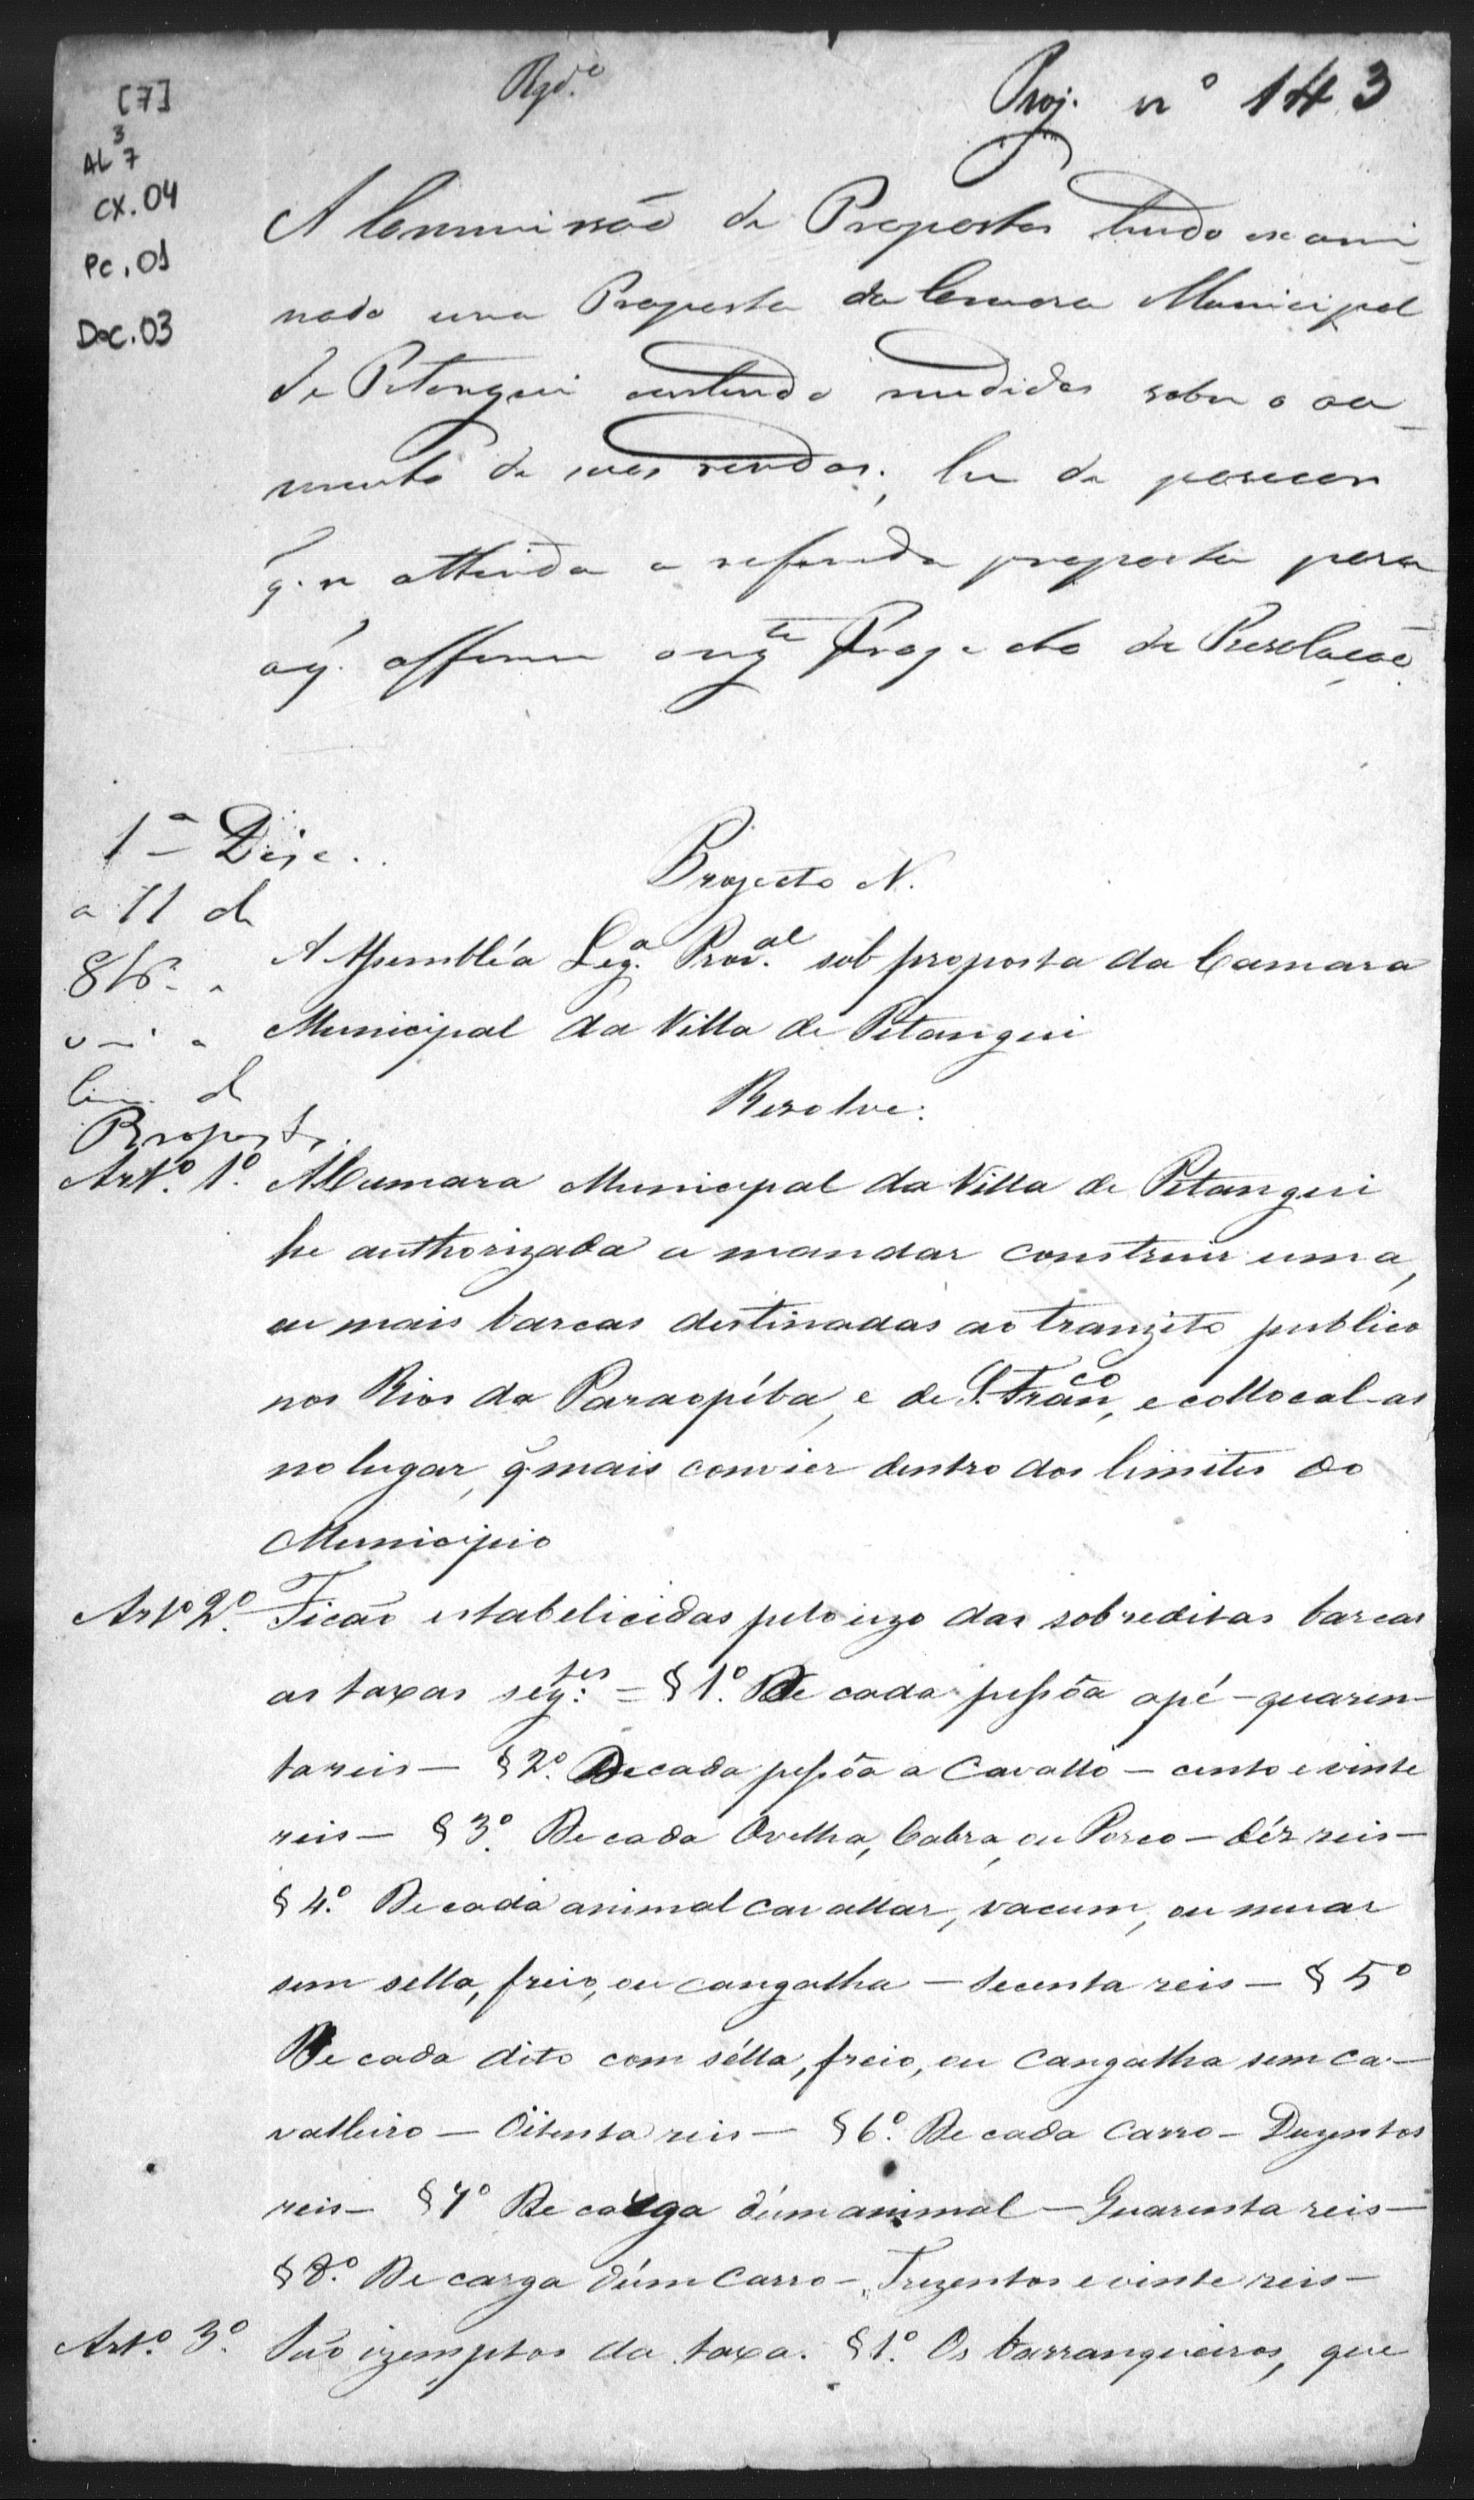 [7]
AL 3 7
cx. 04
Pc. 01
Doc. 03
Rgd.º
Proj. nº 143
A Commissão de Propostas tendo exami-
nado uma Proposta da Camara Municipal
de Pitangui contendo medidas sobre o au-
mento de suas rendas; he de parecer
q. se attenda a referida proposta para
o q. offerece o seg.te Projecto de Resolução.
1ª Disc.
a 11 de
Com. de
Propostas
Projecto N.
A Assembléa Leg.ª Prov.al sob proposta da Camara
Municipal da Villa de Pitangui
Resolve:
Art.º 1º. A Camara Municipal da Villa de Pitangui
he authorizada a mandar construir uma,
ou mais barcas destinadas ao tranzito publico
nos Rios da Paraopéba, e de S. Fran.co, e collocal-as
no lugar, q. mais convier dentro dos limites do
Municipio
Art.º 2º. Ficão estabelicidas pelo uzo das sobreditas barcas
as taxas seg.tes = § 1º. De cada pessôa apé - quaren-
ta reis — § 2º. De cada pessôa a Cavallo — cento e vinte
reis — § 3º. De cada Ovelha, Cabra, ou Porco — déz reis —
§ 4º. De cada animal cavallar, vacum, ou muar
sem sella, freio, ou cangalha — secenta reis — § 5º
De cada dito com sélla, freio, ou Cangalha sem ca-
valleiro — Oitenta reis — § 6º. De cada Carro — Duzentos
reis — § 7º De carga d'um animal — Quarenta reis —
§ 8º. De carga d'úm Carro — Trezentos e vinte reis —
Art.º 3º. São izemptos da taxa. § 1º. Os barranqueiros, que